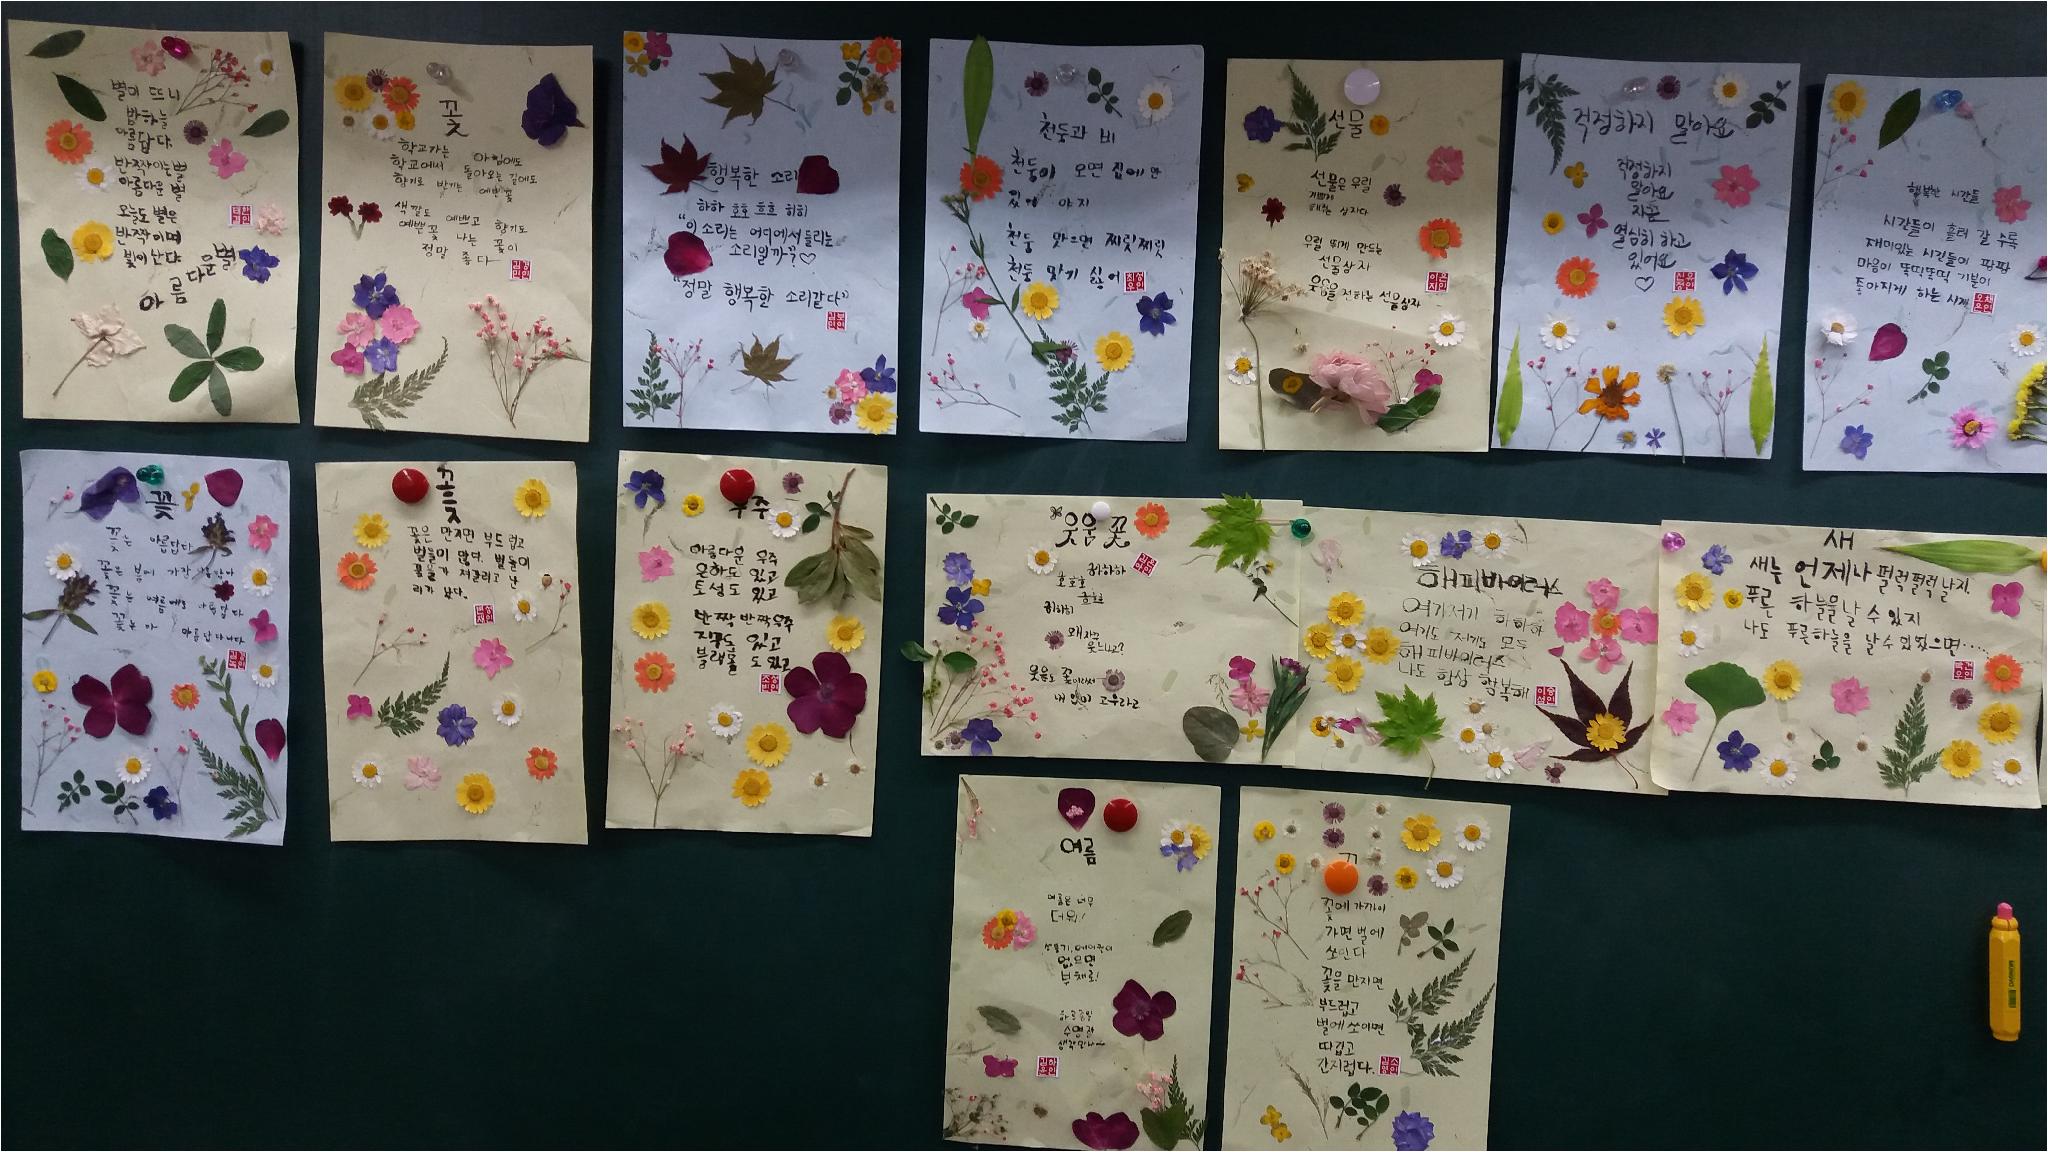 별이 뜨니
밤하늘
아름답다
반짝이는 별
아름다운 별
오늘도 별은
반짝이며
빛이 난다
아름다운 별
꽃
학교가는 아침에도
학교에서 돌아오는 길에도
향기로 반기는 예쁜 꽃
색깔도 예쁘고 향기도
예쁜 꽃 나는 꽃이
정말 좋다
행복한 소리
하하 호호 흐흐 히히
"이 소리는 어디에서 들리는
소리일까?♡
"정말 행복한 소리같다"
천둥과 비
천둥이 오면 집에만
있어야지
천둥 맞으면 찌릿찌릿
천둥 맞기 싫어
선물
선물은 우리
기쁘게
해주는 상자다
우릴 뛰게 만드는
선물상자
웃음을 전하는 선물상자
걱정하지 말아요
걱정하지
말아요
지금
열심히 하고
있어요
♡
행복한 시간들
시간들이 흘러 갈 수록
재미있는 시간들이 팡팡
마음이 똑딱똑딱 기분이
좋아지게 하는 시계
꽃
꽃은 아름답다
꽃은 봄에 가장
꽃은 여름에도 아름답다
꽃은
꽃
꽃은 만지면 부드럽고
벌들이 많다. 벌들이
꽃을 가져갈려고 난
리가 났다.
우주
아름다운 우주
은하도 있고
토성도 있고
반짝 반짝 우주
지구도 있고
블랙홀도 있고
웃음 꽃
히히하하
호호호
흐흐흐
히히히
왜 자꾸
웃느냐고?
웃음도 꽃이라서
내 입이 고우라고
해피바이러스
여기저기 하하하
여기도 저기도 모두
해피바이러스
나도 항상 행복해
새
새는 언제나 펄럭펄럭 날지.
푸른 하늘을 날 수 있지
나도 푸른하늘을 날 수 있었으면……
여름
여름은 너무
더워!
선풍기, 에어컨이
없으면
부채로!
하루종일
수영장
생각만나~
꽃에 가까이
가면 벌에
쏘인다
꽃을 만지면
부드럽고
벌에 쏘이면
따갑고
간지럽다.
MUNGYO